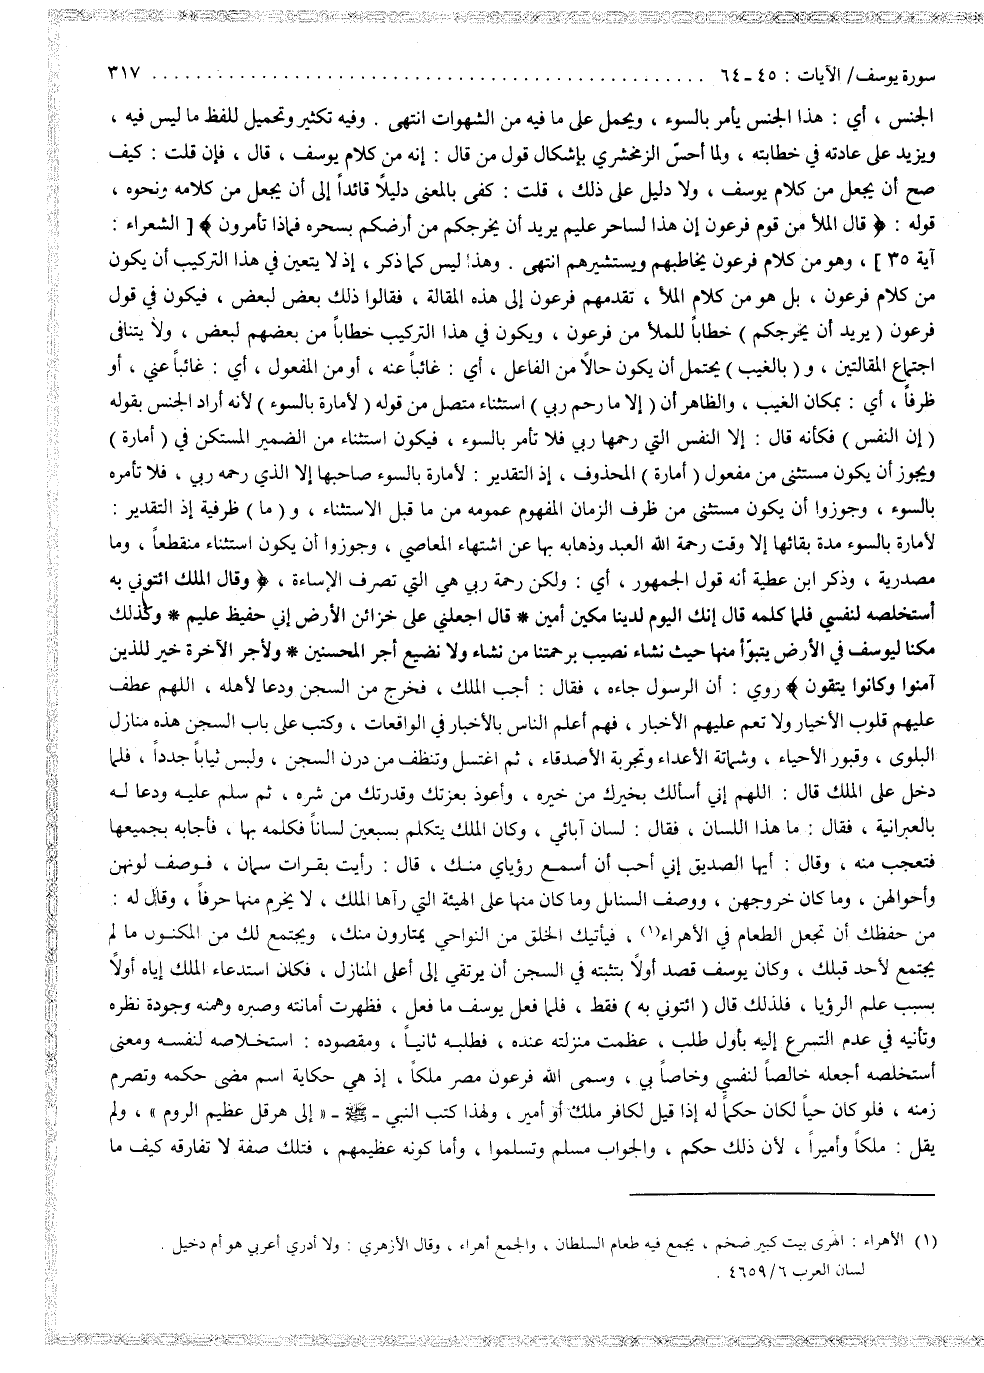 سورة يوسف/ الآيات : ٤٥ـ٦٤ ................................................ ٣١٧
الجنس ، أي : هذا الجنس يأمر بالسوء ، ويحمل على ما فيه من الشهوات انتهى . وفيه تكثير وتحميل للفظ ما ليس فيه ،
ويزيد على عادته في خطابته ، ولما أحسّ الزمخشري بإشكال قول من قال : إنه من كلام يوسف ، قال ، فإن قلت : كيف
صح أن يجعل من كلام يوسف ، ولا دليل على ذلك ، قلت : كفى بالمعنى دليلاً قائداً إلى أن يجعل من كلامه ونحوه ،
قوله : ﴿ قال الملأ من قوم فرعون إن هذا لساحر عليم يريد أن يخرجكم من أرضكم بسحره فماذا تأمرون ﴾ [ الشعراء :
آية ٣٥ ] ، وهو من كلام فرعون يخاطبهم ويستشيرهم انتهى . وهذا ليس كما ذكر ، إذ لا يتعين في هذا التركيب أن يكون
من كلام فرعون ، بل هو من كلام الملأ ، تقدمهم فرعون إلى هذه المقالة ، فقالوا ذلك بعض لبعض ، فيكون في قول
فرعون ( يريد أن يخرجكم ) خطاباً للملأ من فرعون ، ويكون في هذا التركيب خطاباً من بعضهم لبعض ، ولا يتنافى
اجتماع المقالتين ، و ( بالغيب ) يحتمل أن يكون حالاً من الفاعل ، أي : غائباً عنه ، أو من المفعول ، أي : غائباً عني ، أو
ظرفاً ، أي : بمكان الغيب ، والظاهر أن ( إلا ما رحم ربي ) استثناء متصل من قوله ( لأمارة بالسوء ) لأنه أراد الجنس بقوله
( إن النفس ) فكأنه قال : إلا النفس التي رحمها ربي فلا تأمر بالسوء ، فيكون استثناء من الضمير المستكن في ( أمارة )
ويجوز أن يكون مستثنى من مفعول ( أمارة ) المحذوف ، إذ التقدير : لأمارة بالسوء صاحبها إلا الذي رحمه ربي ، فلا تأمره
بالسوء ، وجوزوا أن يكون مستثنى من ظرف الزمان المفهوم عمومه من ما قبل الاستثناء ، و ( ما ) ظرفية إذ التقدير :
لأمارة بالسوء مدة بقائها إلا وقت رحمة الله العبد وذهابه بها عن اشتهاء المعاصي ، وجوزوا أن يكون استثناء منقطعاً ، وما
مصدرية ، وذكر ابن عطية أنه قول الجمهور ، أي : ولكن رحمة ربي هي التي تصرف الإساءة ، ﴿ وقال الملك ائتوني به
أستخلصه لنفسي فلما كلمه قال إنك اليوم لدينا مكين أمين * قال اجعلني على خزائن الأرض إني حفيظ عليم * وكذلك
مكنا ليوسف في الأرض يتبوّأ منها حيث نشاء نصيب برحمتنا من نشاء ولا نضيع أجر المحسنين * ولأجر الآخرة خير للذين
آمنوا وكانوا يتقون ﴾ روي : أن الرسول جاءه ، فقال : أجب الملك ، فخرج من السجن ودعا لأهله ، اللهم عطف
عليهم قلوب الأخيار ولا تعم عليهم الأخبار ، فهم أعلم الناس بالأخبار في الواقعات ، وكتب على باب السجن هذه منازل
البلوى ، وقبور الأحياء ، وشماتة الأعداء وتجربة الأصدقاء ، ثم اغتسل وتنظف من درن السجن ، ولبس ثياباً جدداً ، فلما
دخل على الملك قال : اللهم إني أسألك بخيرك من خيره ، وأعوذ بعزتك وقدرتك من شره ، ثم سلم عليه ودعا له
بالعبرانية ، فقال : ما هذا اللسان ، فقال : لسان آبائي ، وكان الملك يتكلم بسبعين لساناً فكلمه بها ، فأجابه بجميعها
فتعجب منه ، وقال : أيها الصديق إني أحب أن أسمع رؤياي منك ، قال : رأيت بقرات سمان ، فوصف لونهن
وأحوالهن ، وما كان خروجهن ، ووصف السنابل وما كان منها على الهيئة التي رآها الملك ، لا يخرم منها حرفاً ، وقال له :
من حفظك أن تجعل الطعام في الأهراء(١) ، فيأتيك الخلق من النواحي يمتارون منك، ويجتمع لك من المكنوں ما لم
يجتمع لأحد قبلك ، وكان يوسف قصد أولاً بتثبته في السجن أن يرتقي إلى أعلى المنازل ، فكان استدعاء الملك إياه أولاً
بسبب علم الرؤيا ، فلذلك قال ( ائتوني به ) فقط ، فلما فعل يوسف ما فعل ، فظهرت أمانته وصبره وهمته وجودة نظره
وتأنيه في عدم التسرع إليه بأول طلب ، عظمت منزلته عنده ، فطلبه ثانياً ، ومقصوده : استخلاصه لنفسه ومعنى
أستخلصه أجعله خالصاً لنفسي وخاصاً بي ، وسمى الله فرعون مصر ملكاً ، إذ هي حكاية اسم مضى حكمه وتصرم
زمنه ، فلو كان حياً لكان حكماً له إذا قيل لكافر ملك أو أمير ، ولهذا كتب النبي ـ ﷺ ـ « إلى هرقل عظيم الروم » ، ولم
يقل : ملكاً وأميراً ، لأن ذلك حكم ، والجواب مسلم وتسلموا ، وأما كونه عظيمهم ، فتلك صفة لا تفارقه كيف ما
(١) الأهراء : الهرى بيت كبير ضخم ، يجمع فيه طعام السلطان ، والجمع أهراء ، وقال الأزهري : ولا أدري أعربي هو أم دخيل .
لسان العرب ٤٦٥٩/٦ .